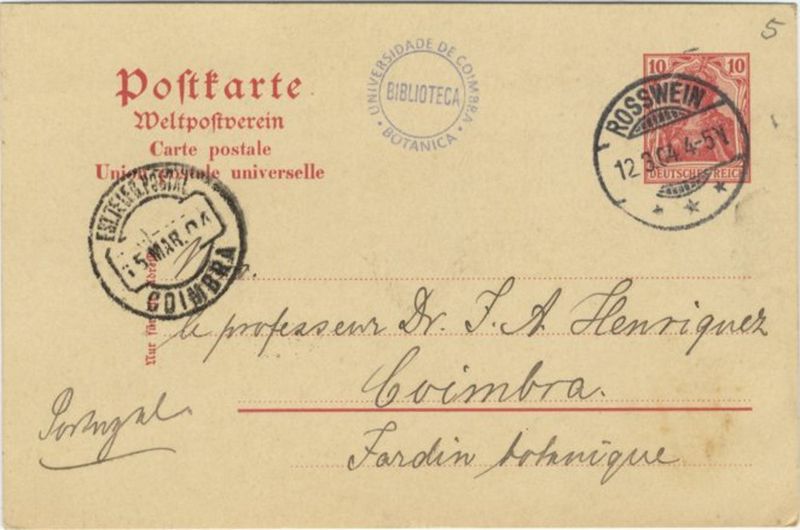 5
Postkarte
Weltpostverein
Carte postale
Union postale universelle
UNIVERSIDADE DE COIMBRA
BIBLIOTECA
BOTANICA
10 10
DEUTSCHES REICH
ROSSWEIN
12.3.04.4-5N
POSTAL
15 MAR. 04
COIMBRA
Nur für
le professeur Dr. J. A. Henriquez
Coimbra.
Portugal.
Jardin botanique